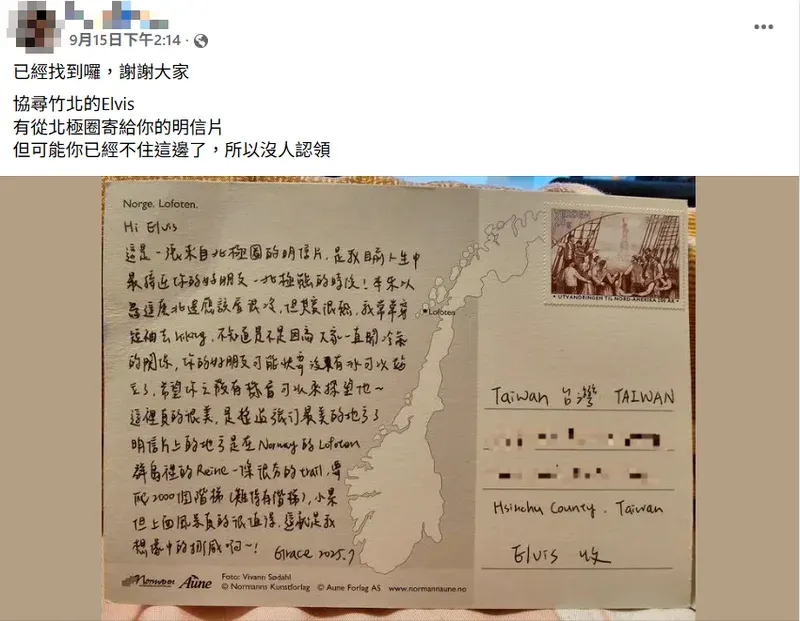 9月15日下午2:14 ·
已經找到囉，謝謝大家
協尋竹北的Elvis
有從北極圈寄給你的明信片
但可能你已經不住這邊了，所以沒人認領
Norge. Lofoten.
Hi Elvis
這是一張來自北極圈的明信片，是我目前人生中
最接近你的好朋友－北極熊的時候！本來以
為這麼北邊應該會很冷，但其實很熱，我常常穿
短袖去hiking，不知道是不是因為大家一直開冷氣
的關係，你的好朋友可能快要沒有冰可以站
了，希望你之後有機會可以來探望他～
這裡真的很美，是
最美的地方了
明信片上的地方是在Norway的Lofoten
群島裡的Reine一條很夯的trail，要
爬2000個階梯（難得有階梯），小累
但上面風景真的很值得，這就是我
想像中的挪威啊～！ Grace 2025.7
Lofoten
UTVANDRINGEN TIL NORD-AMERIKA 200 ÅR
Taiwan 台灣 TAIWAN
Hsinchu County, Taiwan
Elvis 收
Normann Aune
Foto: Vivann Sødahl
© Normanns Kunstforlag © Aune Forlag AS www.normannaune.no